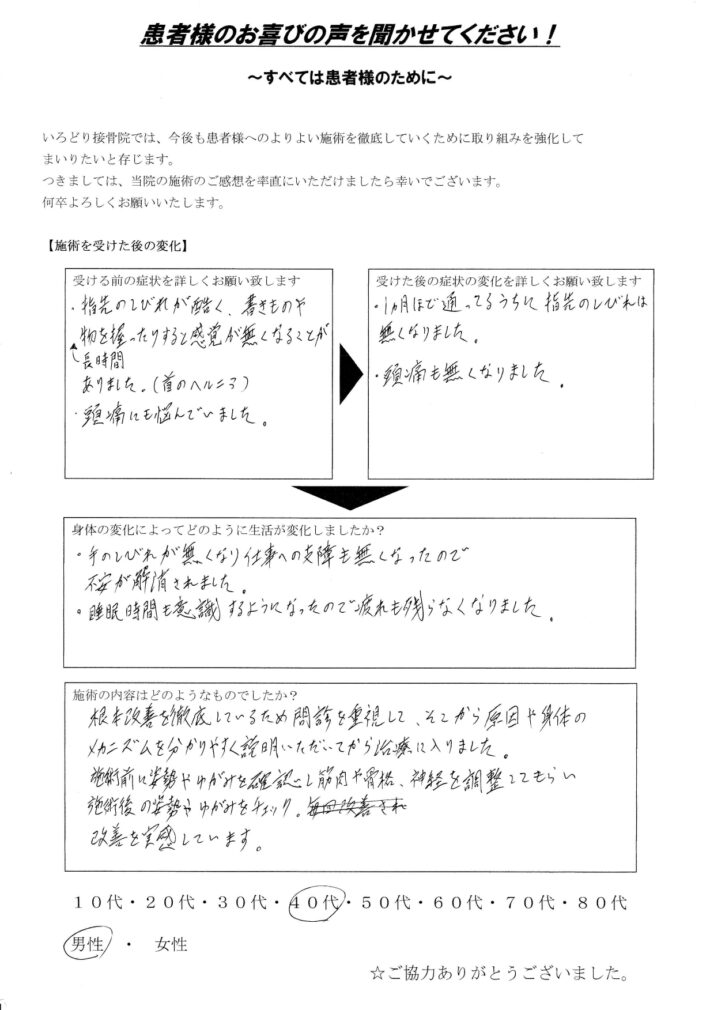 患者様のお喜びの声を聞かせてください！
～すべては患者様のために～
いろどり接骨院では、今後も患者様へのよりよい施術を徹底していくために取り組みを強化して
まいりたいと存じます。
つきましては、当院の施術のご感想を率直にいただけましたら幸いでございます。
何卒よろしくお願いいたします。
【施術を受けた後の変化】
受ける前の症状を詳しくお願い致します
・指先のしびれが酷く、書きものや
物を握ったりすると感覚が無くなることが
長時間
ありました。(首のヘルニア)
・頭痛にも悩んでいました。
受けた後の症状の変化を詳しくお願い致します
・1ヵ月ほど通ってるうちに指先のしびれは
無くなりました。
・頭痛も無くなりました。
身体の変化によってどのように生活が変化しましたか？
・手のしびれが無くなり仕事への支障も無くなったので
不安が解消されました。
・睡眠時間も意識するようになったので疲れも残らなくなりました。
施術の内容はどのようなものでしたか？
根本改善を徹底しているため問診を重視して、そこから原因や身体の
メカニズムを分かりやすく説明いただいてから治療に入りました。
施術前に姿勢やゆがみを確認し筋肉や骨格、神経を調整してもらい
施術後の姿勢やゆがみをチェック。毎回改善され
改善を実感しています。
１０代・２０代・３０代・４０代・５０代・６０代・７０代・８０代
男性 ・ 女性
☆ご協力ありがとうございました。